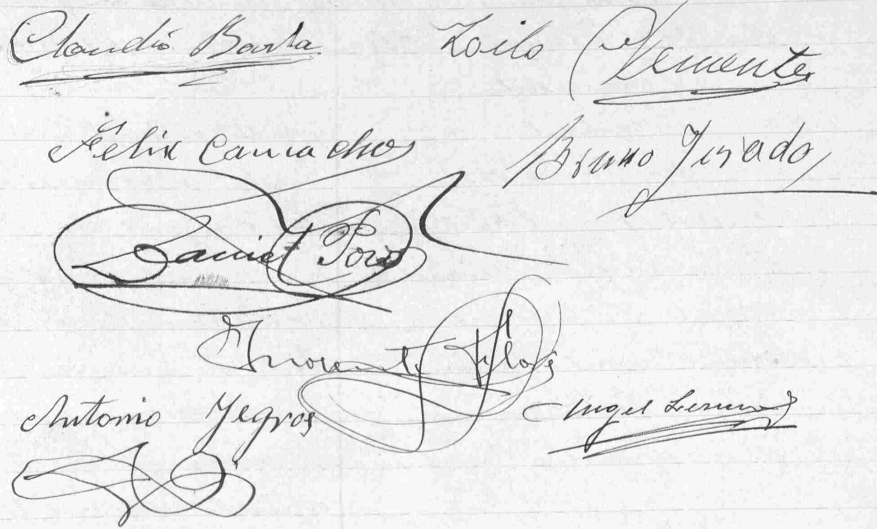 Claudio Barba Zoilo Clemente
Felix Camacho Bruno Jurado
Daniel Pozo
Inocente
Antonio Yegros Angel